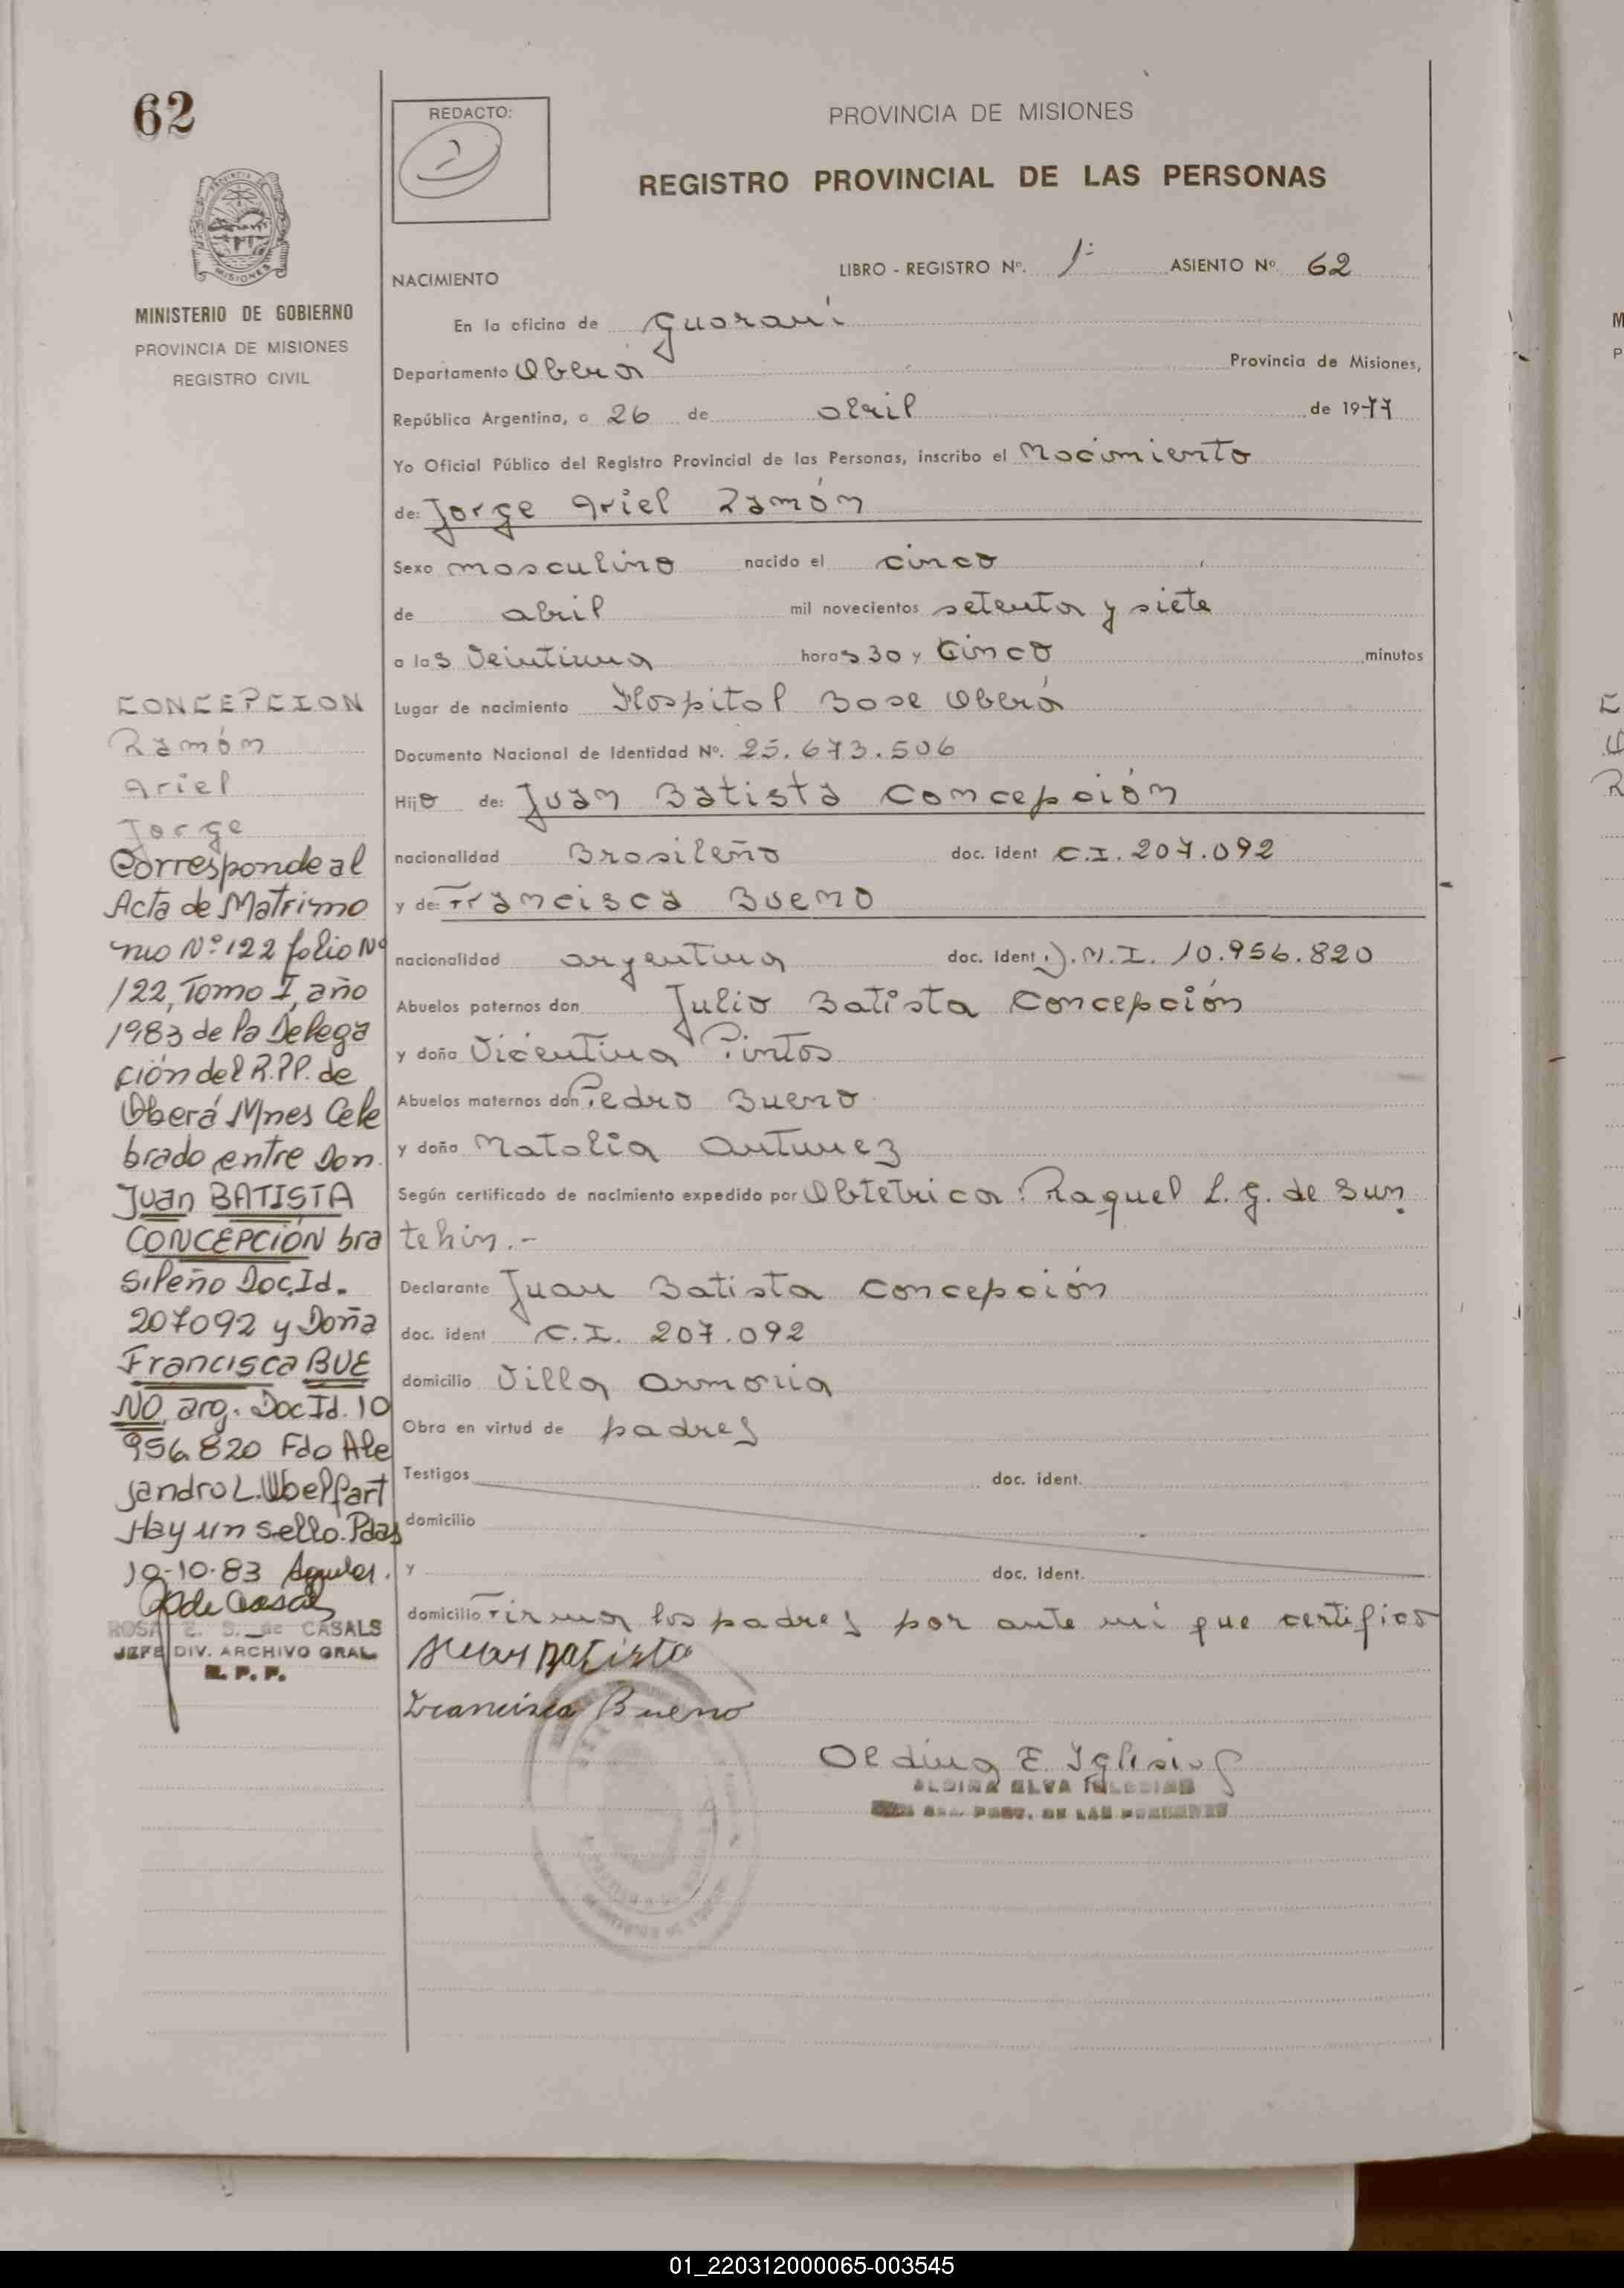 62
MINISTERIO DE GOBIERNO
PROVINCIA DE MISIONES
REGISTRO CIVIL
CONCEPCION
Ramón
Ariel
Jorge
Corresponde al
Acta de Matrimo
nio Nº 122 folio Nº
122, Tomo I, año
1983 de la Delega
ción del R.P.P. de
Oberá Mnes Cele
brado entre Don
Juan BATISTA
CONCEPCIÓN bra
sileño Doc.Id.
207092 y Doña
Francisca BUE
NO, arg. Doc Id. 10
956.820 Fdo Ale
jandro L.
Hay un sello. Pdas
10-10-83
ROSA E. S. de CASALS
JEFE DIV. ARCHIVO GRAL.
R. P. P.
REDACTO:
PROVINCIA DE MISIONES
REGISTRO PROVINCIAL DE LAS PERSONAS
NACIMIENTO
LIBRO - REGISTRO Nº. 1º ASIENTO Nº 62
En la oficina de Guaraní
Departamento Oberá Provincia de Misiones,
República Argentina, a 26 de abril de 1977
Yo Oficial Público del Registro Provincial de las Personas, inscribo el Nacimiento
de: Jorge Ariel Ramón
Sexo masculino nacido el cinco
de abril mil novecientos setenta y siete
a las veintiuna horas 30 y Cinco minutos
Lugar de nacimiento Hospital Base Oberá
Documento Nacional de Identidad Nº. 25.673.506
Hijo de: Juan Batista Concepción
nacionalidad Brasileño doc. ident C.I. 207.092
y de: Francisca Bueno
nacionalidad argentina doc. ident D.N.I. 10.956.820
Abuelos paternos don Julio Batista Concepción
y doña Vicentina Pintos
Abuelos maternos don Pedro Bueno
y doña Natalia Antunez
Según certificado de nacimiento expedido por Obtetrica: Raquel L. G. de Sun
tehin.-
Declarante Juan Batista Concepción
doc. ident C.I. 207.092
domicilio Villa Armonia
Obra en virtud de padres
Testigos doc. ident.
domicilio
y doc. ident.
domicilio Firman los padres por ante mi que certifico
Juan Batista
Francisca Bueno
Aldina E. Iglesias
ALDINA ELVA IGLESIAS
01_220312000065-003545